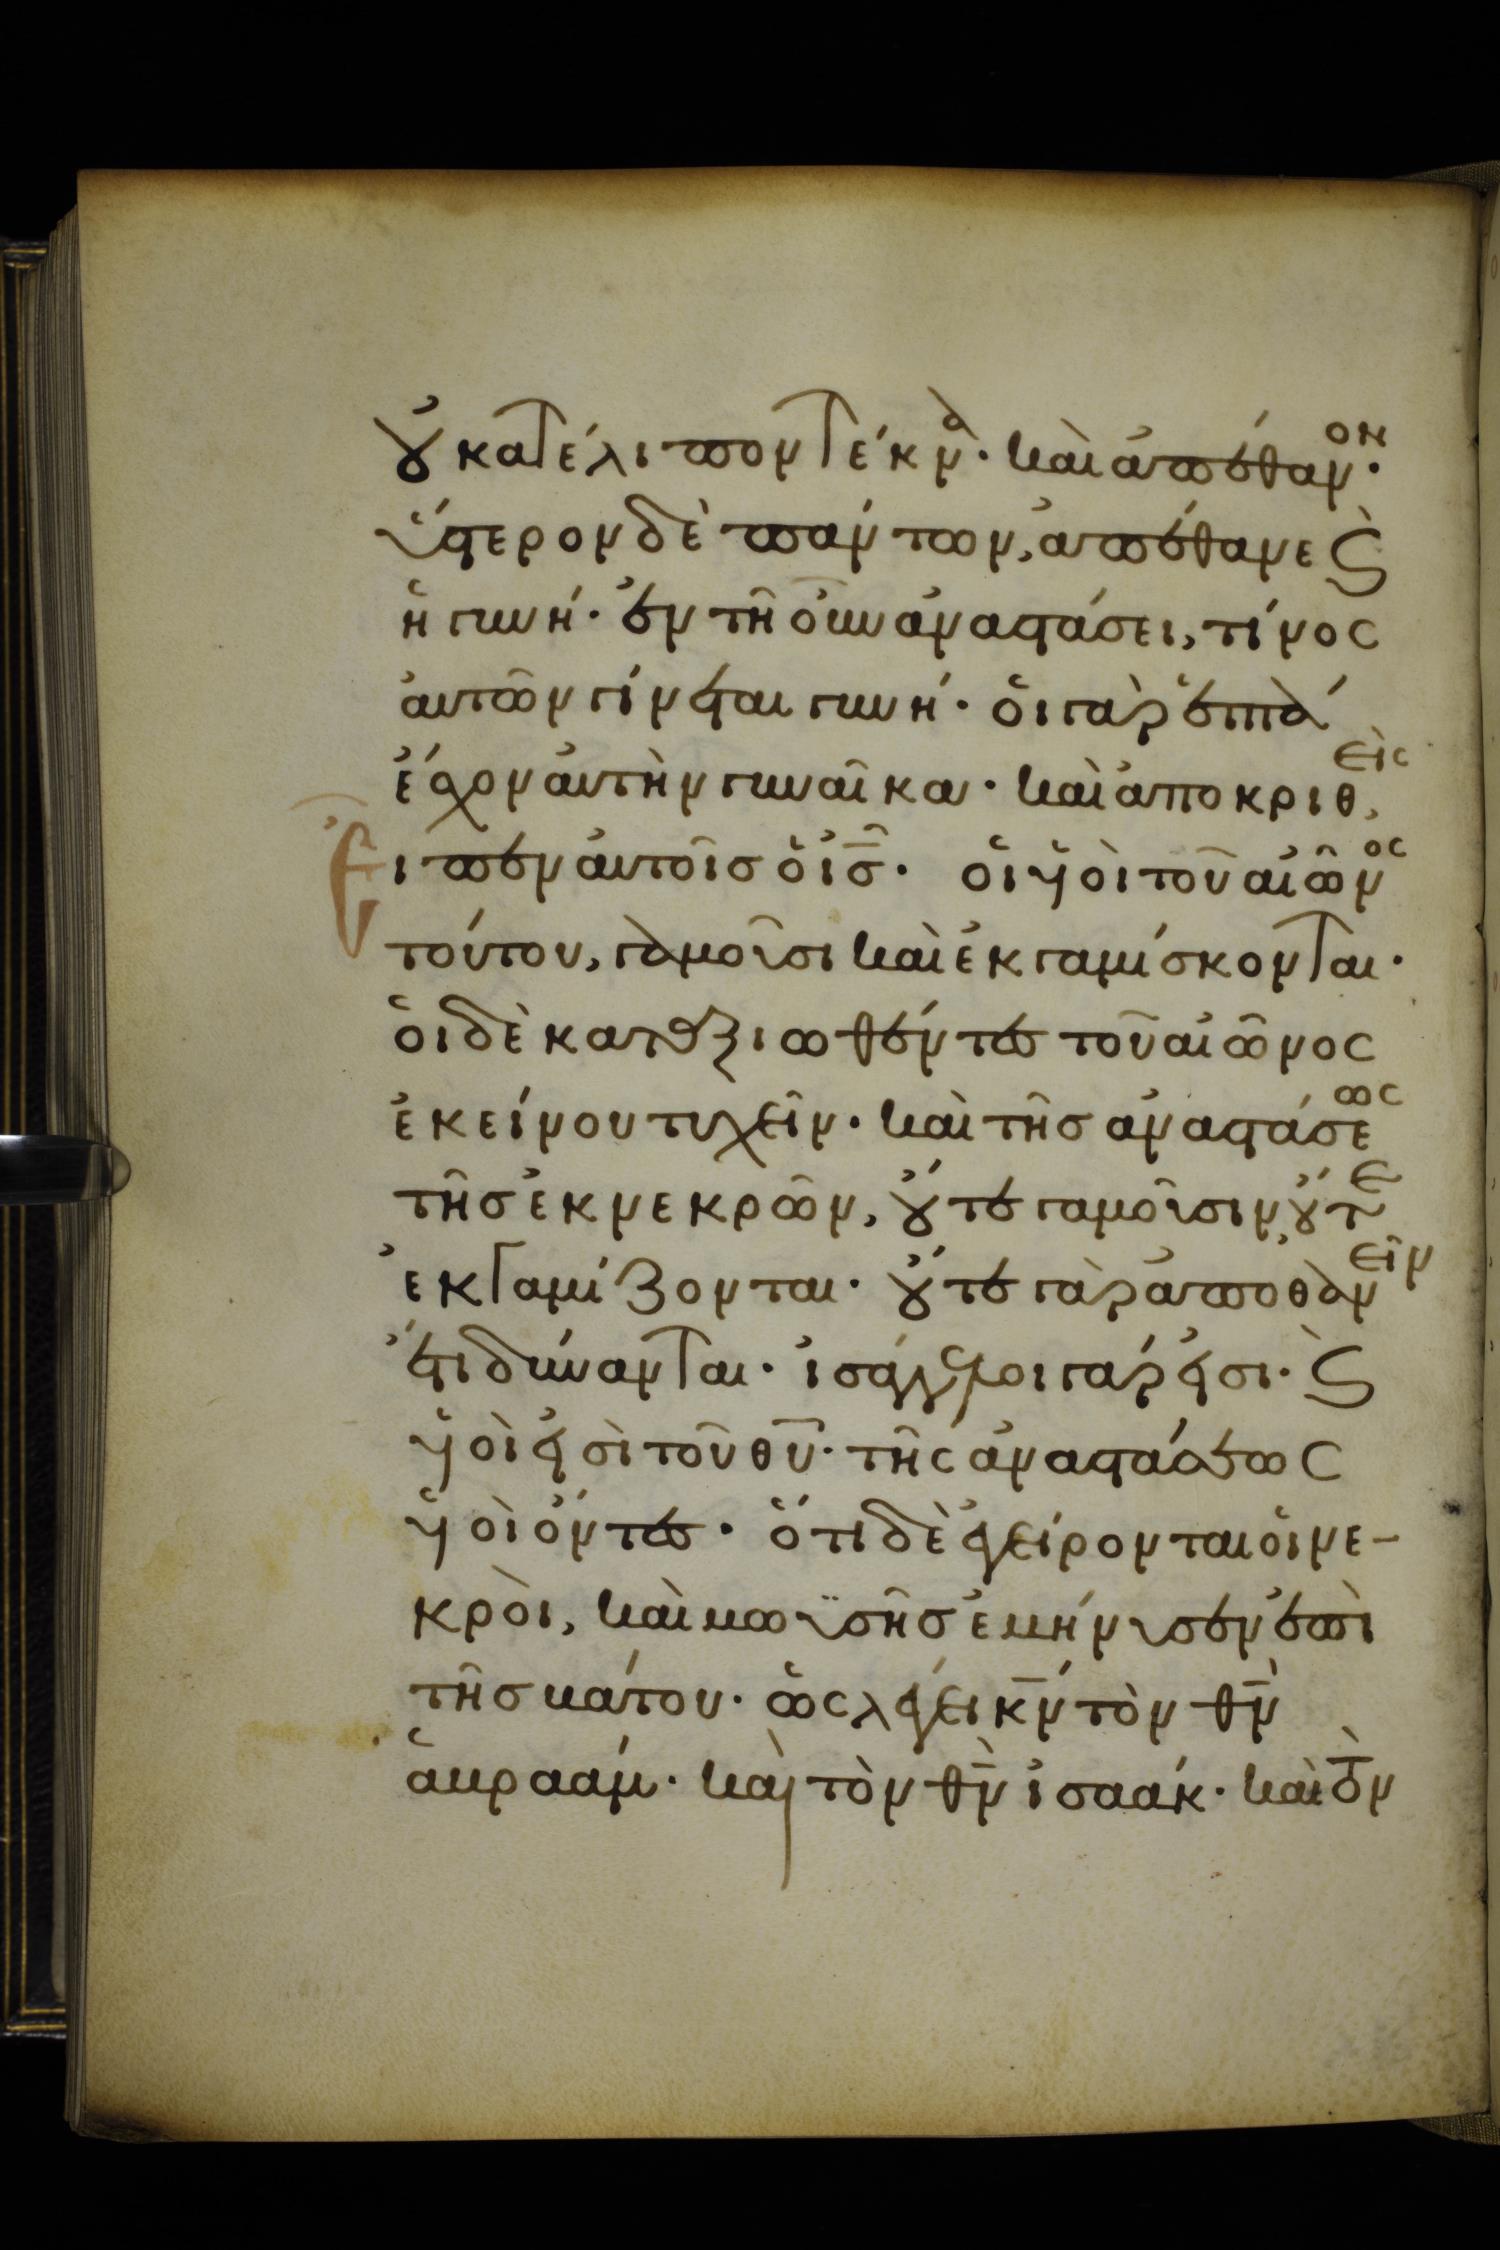 οὐ κατέλιπον τέκνα· καὶ ἀπέθανον·
ὕστερον δὲ πάντων, ἀπέθανε καὶ
ἡ γυνή· ἐν τῇ οὖν ἀναστάσει, τίνος
αὐτῶν γίνεται γυνή· οἱ γὰρ ἑπτὰ
ἔσχον αὐτὴν γυναῖκα· καὶ ἀποκριθεὶς,
εἶπεν αὐτοῖς ὁ ἰς̄· οἱ ὑοὶ τοῦ αἰῶνος
τούτου, γαμοῦσι καὶ ἐκγαμίσκονται·
οἱ δὲ καταξιωθέντες τοῦ αἰῶνος
ἐκείνου τυχεῖν· καὶ τῆς ἀναστάσεως
τῆς ἐκ νεκρῶν, οὔτε γαμοῦσιν οὔτε
ἐκγαμίζονται· οὔτε γὰρ ἀποθανεῖν
ἔτι δύνανται· ἰσάγγελοι γάρ εἰσι· καὶ
ὑοὶ εἰσὶ τοῦ θῡ· τῆς ἀναστάσεως
ὑοὶ ὄντες· ὅτι δὲ ἐγείρονται οἱ νε-
κροὶ, καὶ μωϋσῆς ἐμήνυσεν ἐπὶ
τῆς βάτου· ὡς λέγει κν̄ τὸν θν̄
ἁβραάμ· καὶ τὸν θν̄ ἰσαάκ· καὶ τὸν